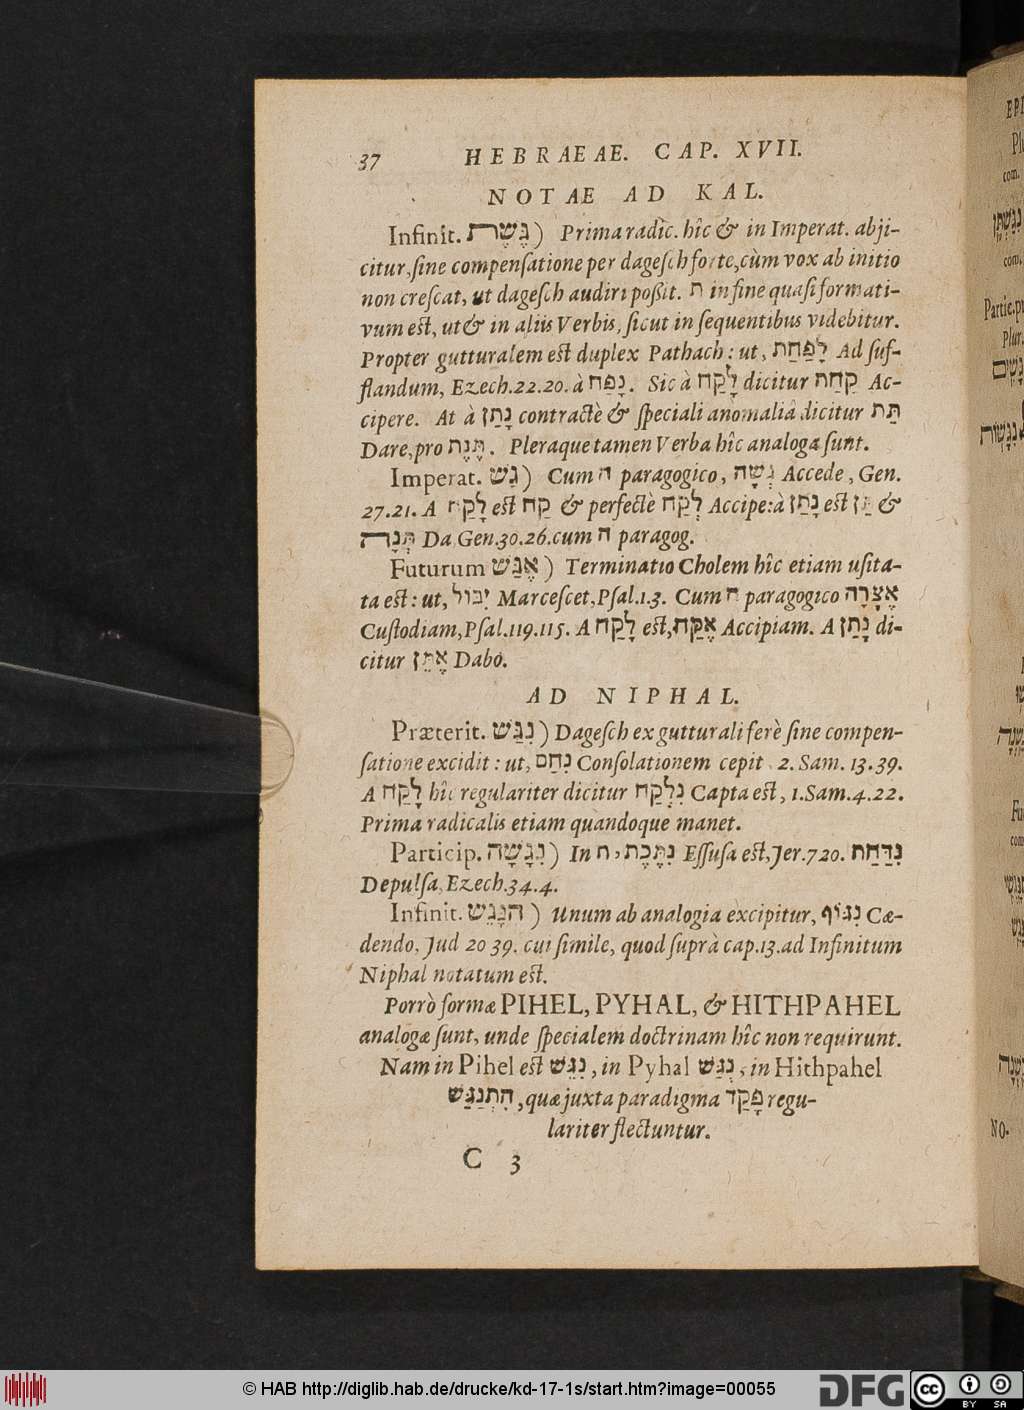 37 HEBRAEAE. CAP. XVII.
NOTAE AD KAL.
Infinit. גֶּשֶׁת) Prima radic. hîc & in Imperat. abji-
citur, ſine compenſatione per dageſch forte, cùm vox ab initio
non creſcat, ut dageſch audiri poßit. ת in fine quaſi formati-
vum est, ut & in aliis Verbis, ſicut in ſequentibus videbitur.
Propter gutturalem est duplex Pathach: ut, לָפַחַת Ad ſuf-
flandum, Ezech.22.20. à נָפַח. Sic à לָקַח dicitur קַחַת Ac-
cipere. At à נָתַן contractè & ſpeciali anomaliâ dicitur תֵּת
Dare, pro תֶּנֶת. Pleraque tamen Verba hîc analoga ſunt.
Imperat. גַּשׁ) Cum ה paragogico, גְּשָׁה Accede, Gen.
27.21. A לָקַח est קַח & perfectè לְקַח Accipe: à נָתַן est תֵּן &
תְּנָה Da Gen.30.26. cum ה paragog.
Futurum אֶגַּשׁ) Terminatio Cholem hîc etiam uſita-
ta est: ut, יִבּוֹל Marceſcet, Pſal.1.3. Cum ה paragogico אֶצְּרָה
Cuſtodiam, Pſal.119.115. A לָקַח est, אֶקַּח Accipiam. A נָתַן di-
citur אֶתֵּן Dabo.
AD NIPHAL.
Præterit. נִגַּשׁ) Dageſch ex gutturali ferè ſine compen-
ſatione excidit: ut, נִחַם Conſolationem cepit 2. Sam. 13.39.
A לָקַח hîc regulariter dicitur נִלְקַח Capta est, 1.Sam.4.22.
Prima radicalis etiam quandoque manet.
Particip. נִגָּשָׁה) In ת, נִתֶּכֶת Effuſa est, Jer.720. נִדַּחַת
Depulſa, Ezech.34.4.
Infinit. הִנָּגֵשׁ) Unum ab analogia excipitur, נִגּוֹף Cæ-
dendo, Jud 20 39. cui ſimile, quod ſuprà cap.13. ad Infinitum
Niphal notatum est.
Porrò formæ PIHEL, PYHAL, & HITHPAHEL
analogæ ſunt, unde ſpecialem doctrinam hîc non requirunt.
Nam in Pihel est נִגֵּשׁ, in Pyhal נֻגַּשׁ, in Hithpahel
הִתְנַגַּשׁ, quæ juxta paradigma פָּקַד regu-
lariter flectuntur.
C 3
© HAB http://diglib.hab.de/drucke/kd-17-1s/start.htm?image=00055
DFG
cc BY SA